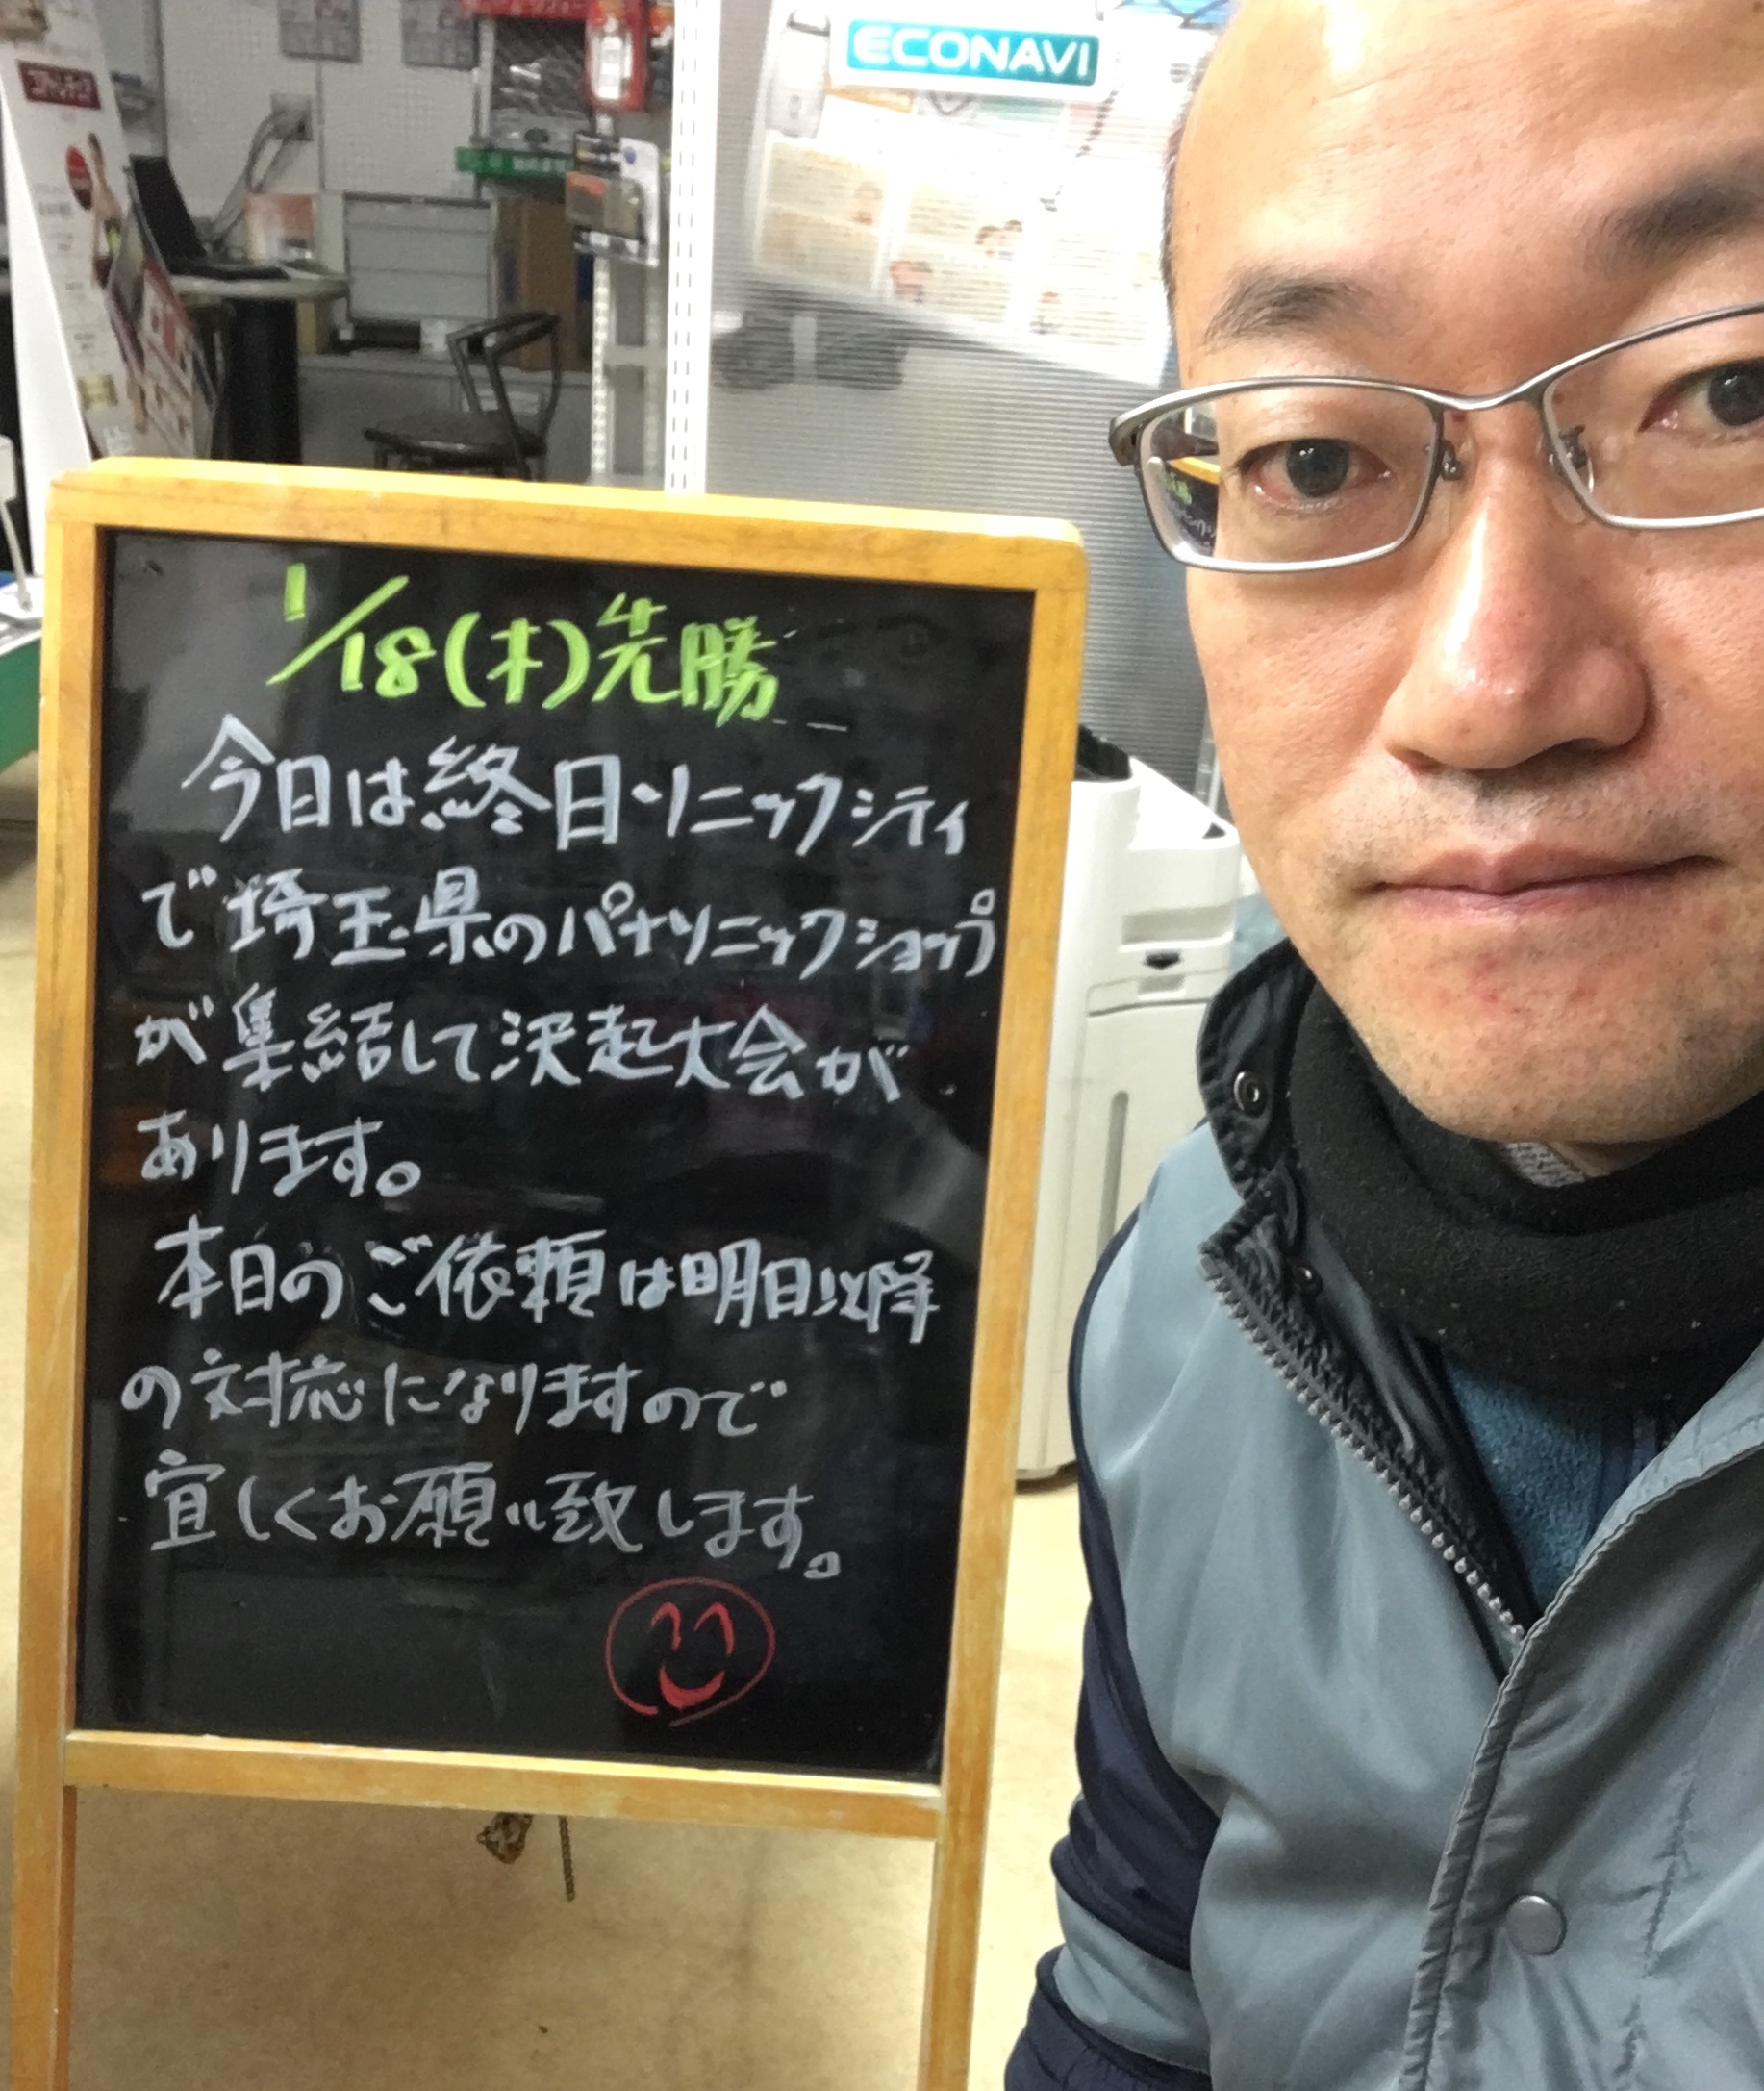 ECONAVI
1/18(木)先勝
今日は終日ソニックシティ
で埼玉県のパナソニックショップ
が集結して決起大会が
あります。
本日のご依頼は明日以降
の対応になりますので
宜しくお願い致します。